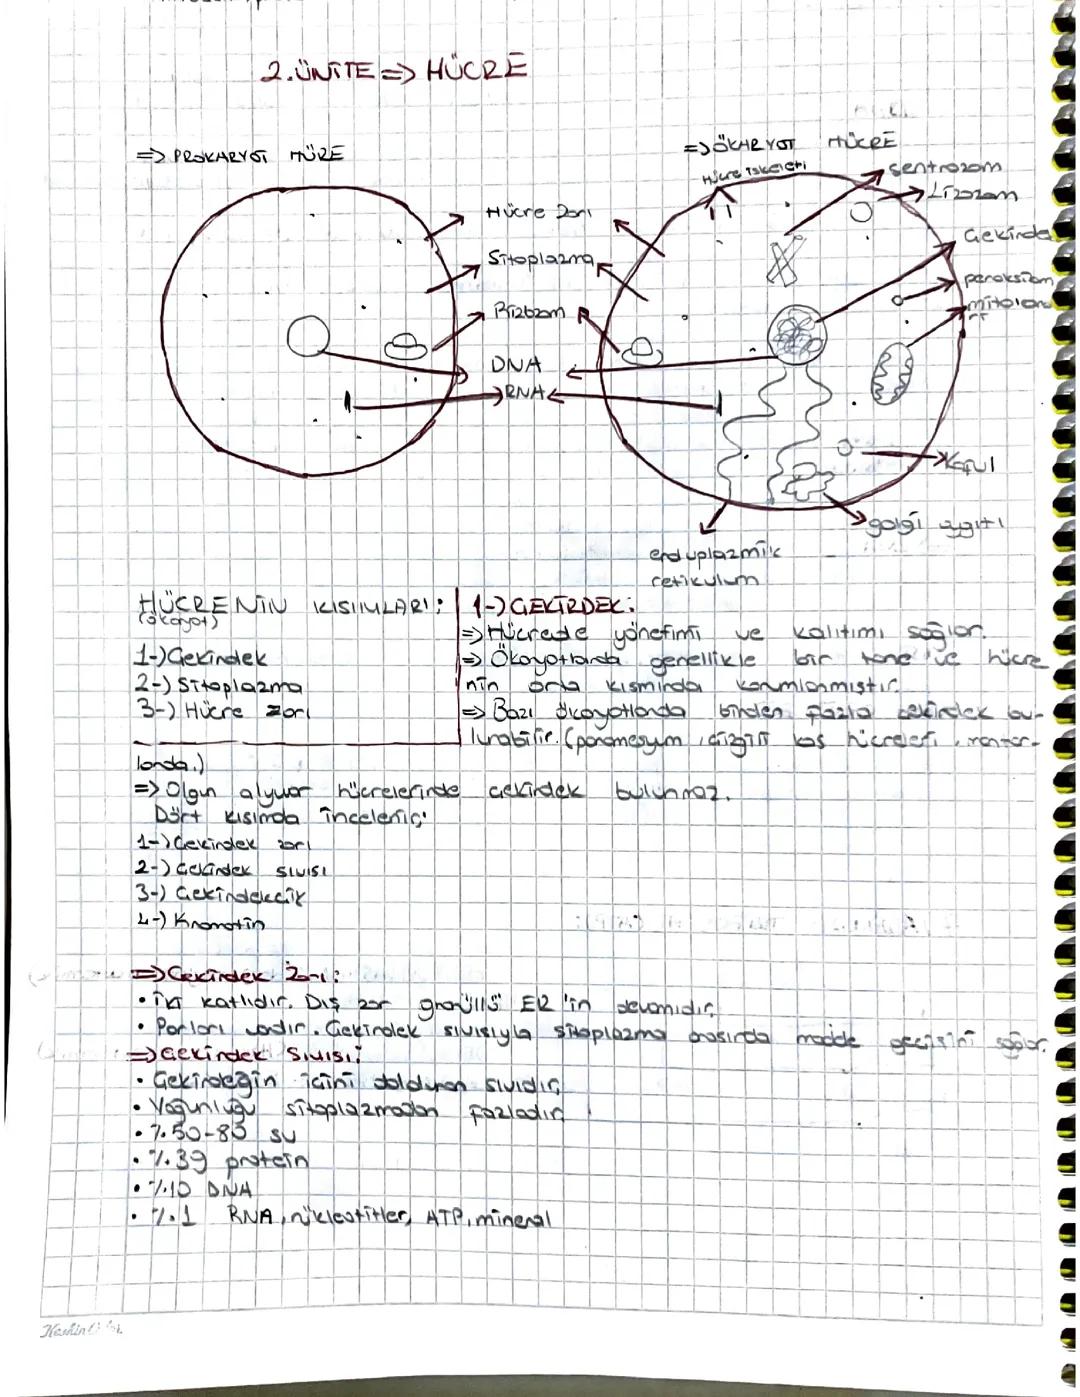 2.ÜNİTE => HÜCRE
=> PROKARYOT HÜRE
=> ÖKARYOT HÜCRE
Hücre iskeleti
sentrozom
Lizozom
Hücre zarı
Çekirdek
Sitoplazma
peroksizom
Ribozom
DNA
RNA
Koful
golgi aygıtı
enduplazmik
retikulum
HÜCRENİN KISIMLARI:
(ökayot)
1-) Çekirdek
2-) Sitoplazma
3-) Hücre zarı
1-) ÇEKİRDEK:
=> Hücrede yönetimi ve kalıtımı sağlar.
=> Ökayotlarda genellikle bir tane ve hücre
nin orta kısmında konumlanmıştır.
=> Bazı ökayotlarda birden fazla çekirdek bu-
lunabilir. (paramesyum, çizgili kas hücreleri, mantar-
larda.)
=> Olgun alyuvar hücrelerinde çekirdek bulunmaz.
Dört kısımda incelenir;
1-) Çekirdek zarı
2-) Çekirdek sıvısı
3-) Çekirdekcik
4-) Kromotin
=> Çekirdek Zarı:
• İki katlıdır. Dış zar granüllü ER'in devamıdır.
• Porları vardır. Çekirdek sıvısıyla sitoplazma arasında madde geçişini sağlar.
=> Çekirdek Sıvısı:
• Çekirdeğin içini dolduran sıvıdır.
• Yoğunluğu sitoplazmadan fazladır.
• %50-80 su
• %39 protein
• %10 DNA
• %1 RNA, nükleotitler, ATP, mineral